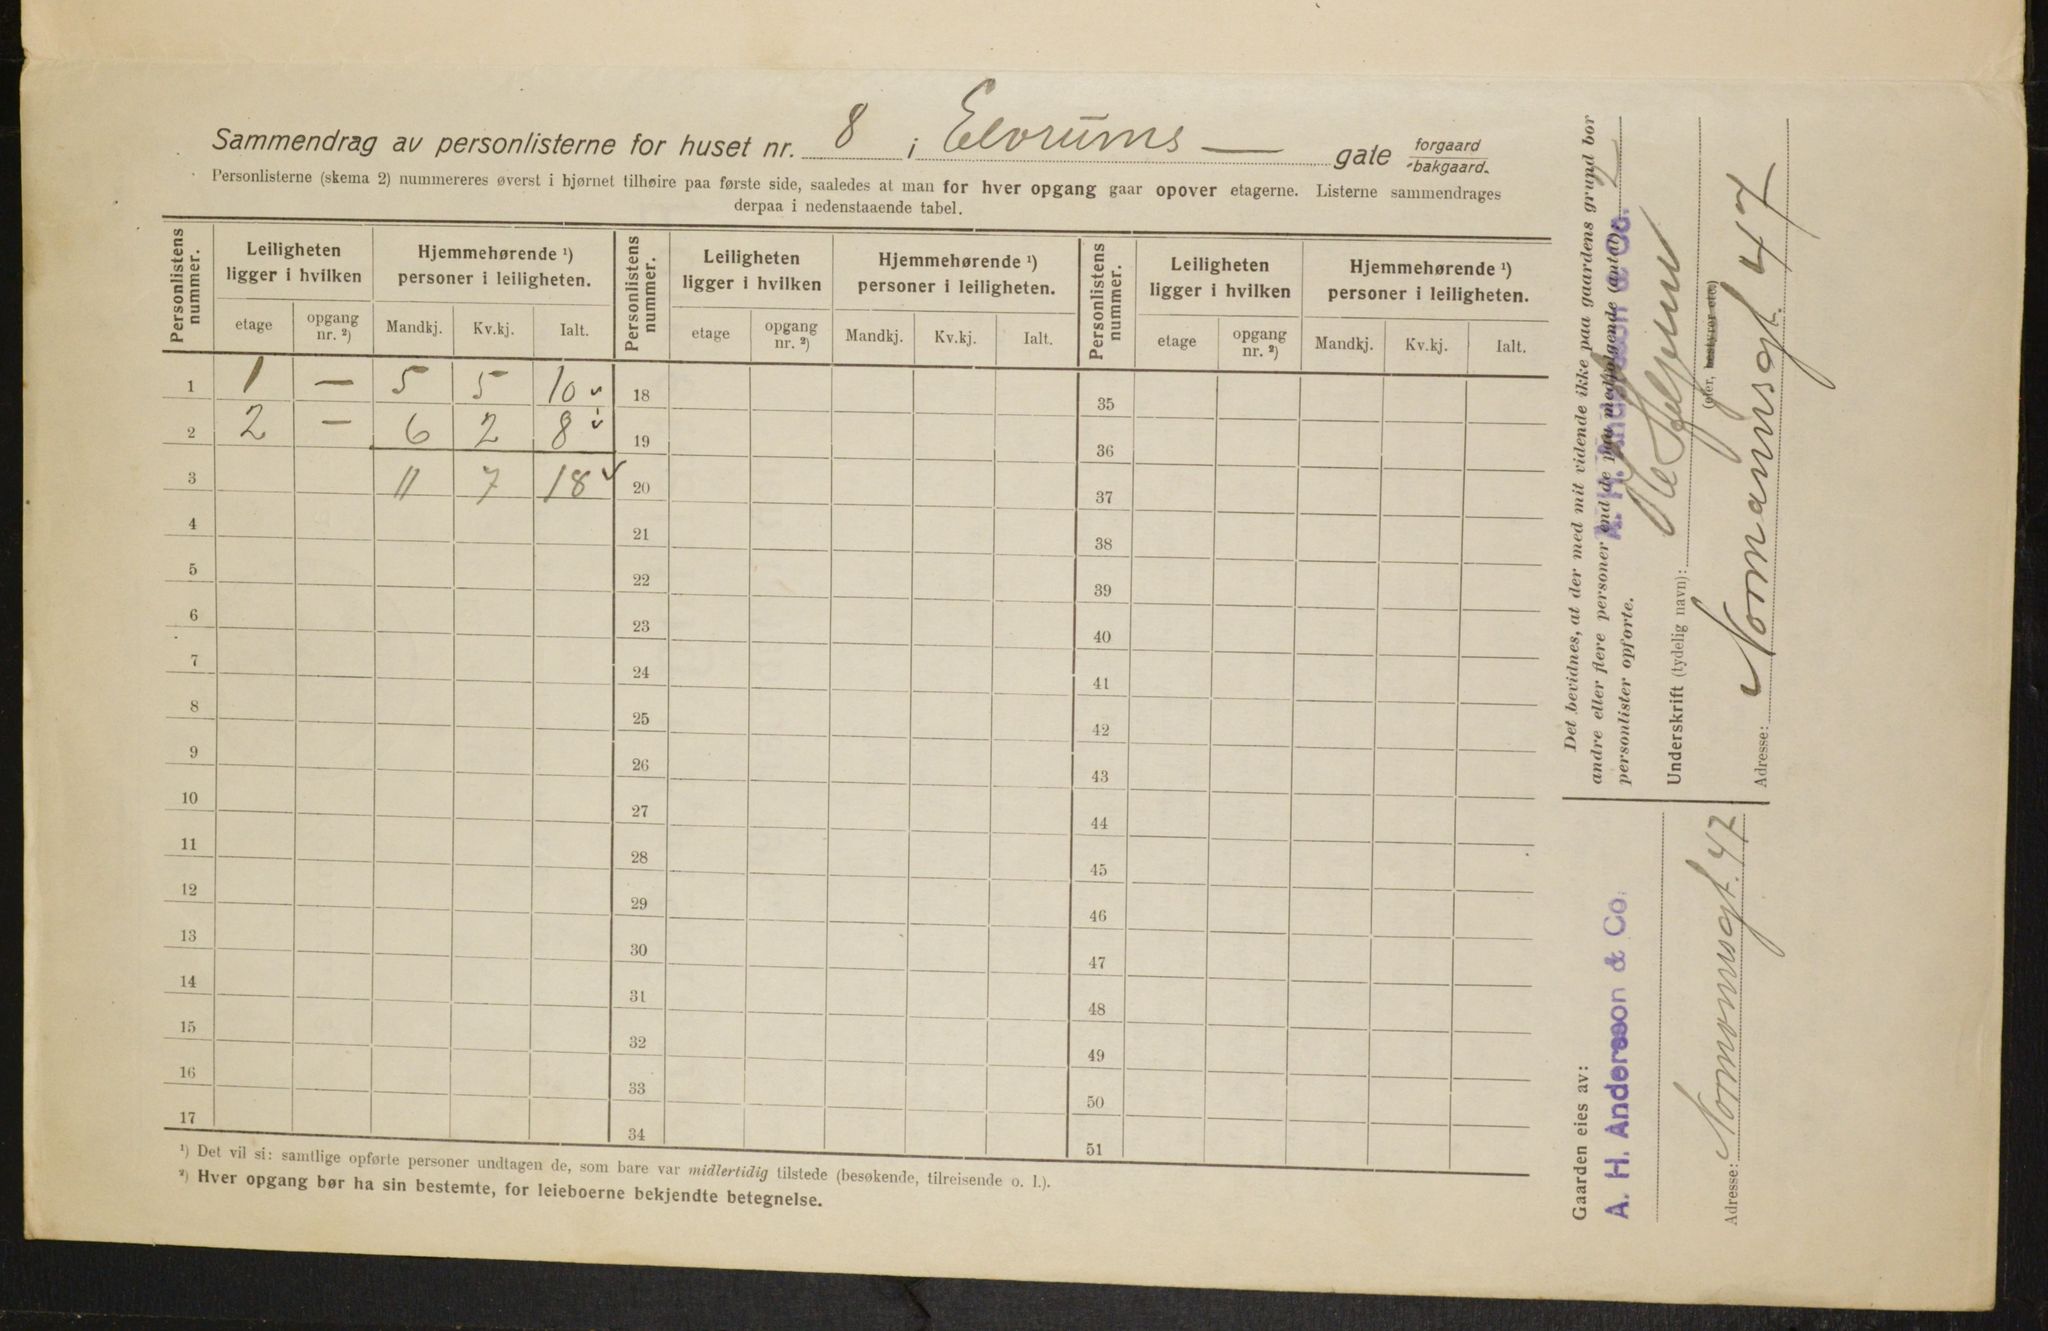 Sammendrag av personlisterne for huset nr. 8 i Elvrums — gate forgaard/bakgaard.
Personlisterne (skema 2) nummereres øverst i hjørnet tilhøire paa første side, saaledes at man for hver opgang gaar opover etagerne. Listerne sammendrages
derpaa i nedenstaaende tabel.
Personlistens nummer. Leiligheten ligger i hvilken Hjemmehørende ¹) personer i leiligheten. Personlistens nummer. Leiligheten ligger i hvilken Hjemmehørende ¹) personer i leiligheten. Personlistens nummer. Leiligheten ligger i hvilken Hjemmehørende ¹) personer i leiligheten.
etage opgang nr. ²) Mandkj. Kv.kj. Ialt. etage opgang nr. ²) Mandkj. Kv.kj. Ialt. etage opgang nr. ²) Mandkj. Kv.kj. Ialt.
1 1 — 5 5 10 18 35
2 2 — 6 2 8 19 36
3 11 7 18 20 37
4 21 38
5 22 39
6 23 40
7 24 41
8 25 42
9 26 43
10 27 44
11 28 45
12 29 46
13 30 47
14 31 48
15 32 49
16 33 50
17 34 51
¹) Det vil si: samtlige opførte personer undtagen de, som bare var midlertidig tilstede (besøkende, tilreisende o. l.).
²) Hver opgang bør ha sin bestemte, for leieboerne bekjendte betegnelse.
Det bevidnes, at der med mit vidende ikke paa gaardens grund bor
andre eller flere personer end de paa medfølgende (antal) 2
personlister opførte.
A. H. Andersson & Co.
Underskrift (tydelig navn):
(eier, bestyrer etc.)
Adresse: Normannsgt. 47
Gaarden eies av:
A. H. Andersson & Co.
Adresse: Normannsgt. 47